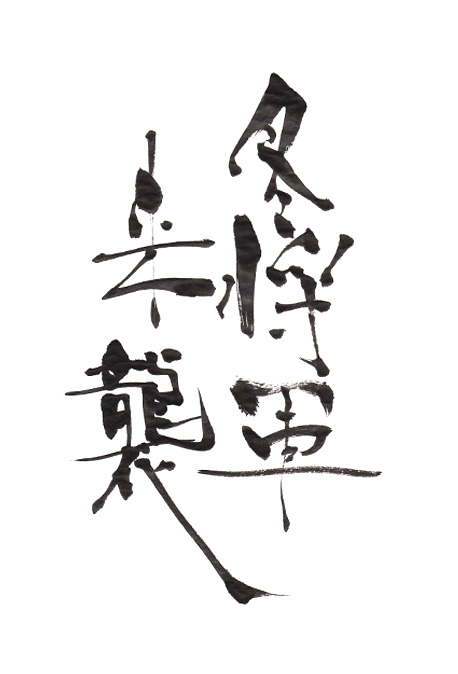 冬将軍
来襲